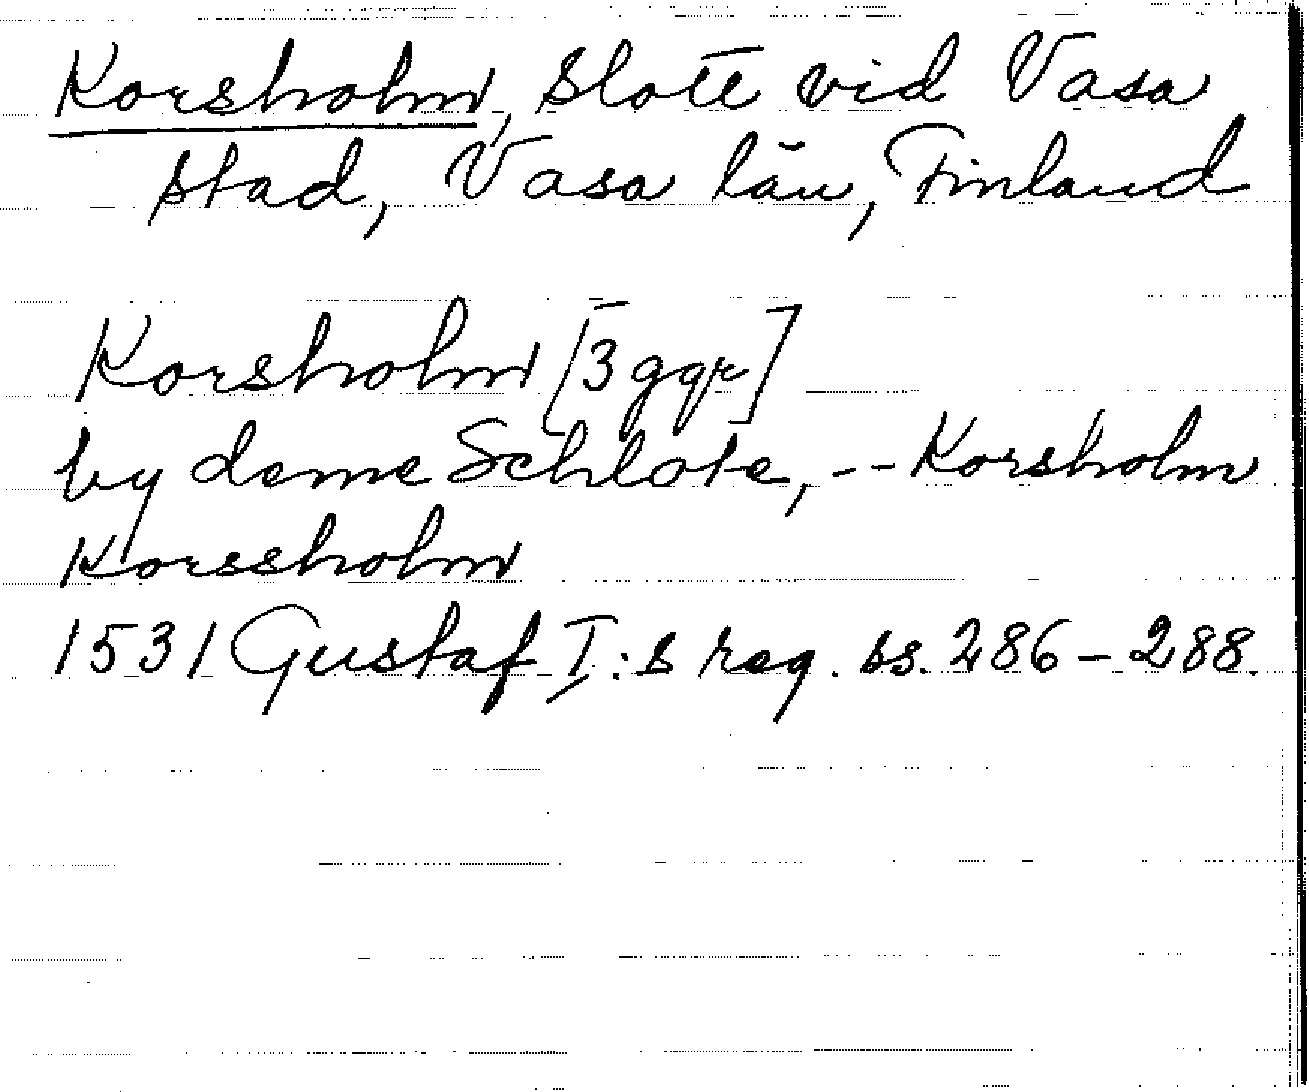 Korsholm, slott vid Vasa
stad, Vasa län, Finland
Korsholm [3 ggr]
by deme Schlote, -- Korsholm
Korssholm
1531 Gustaf I:s reg. ss. 286-288.